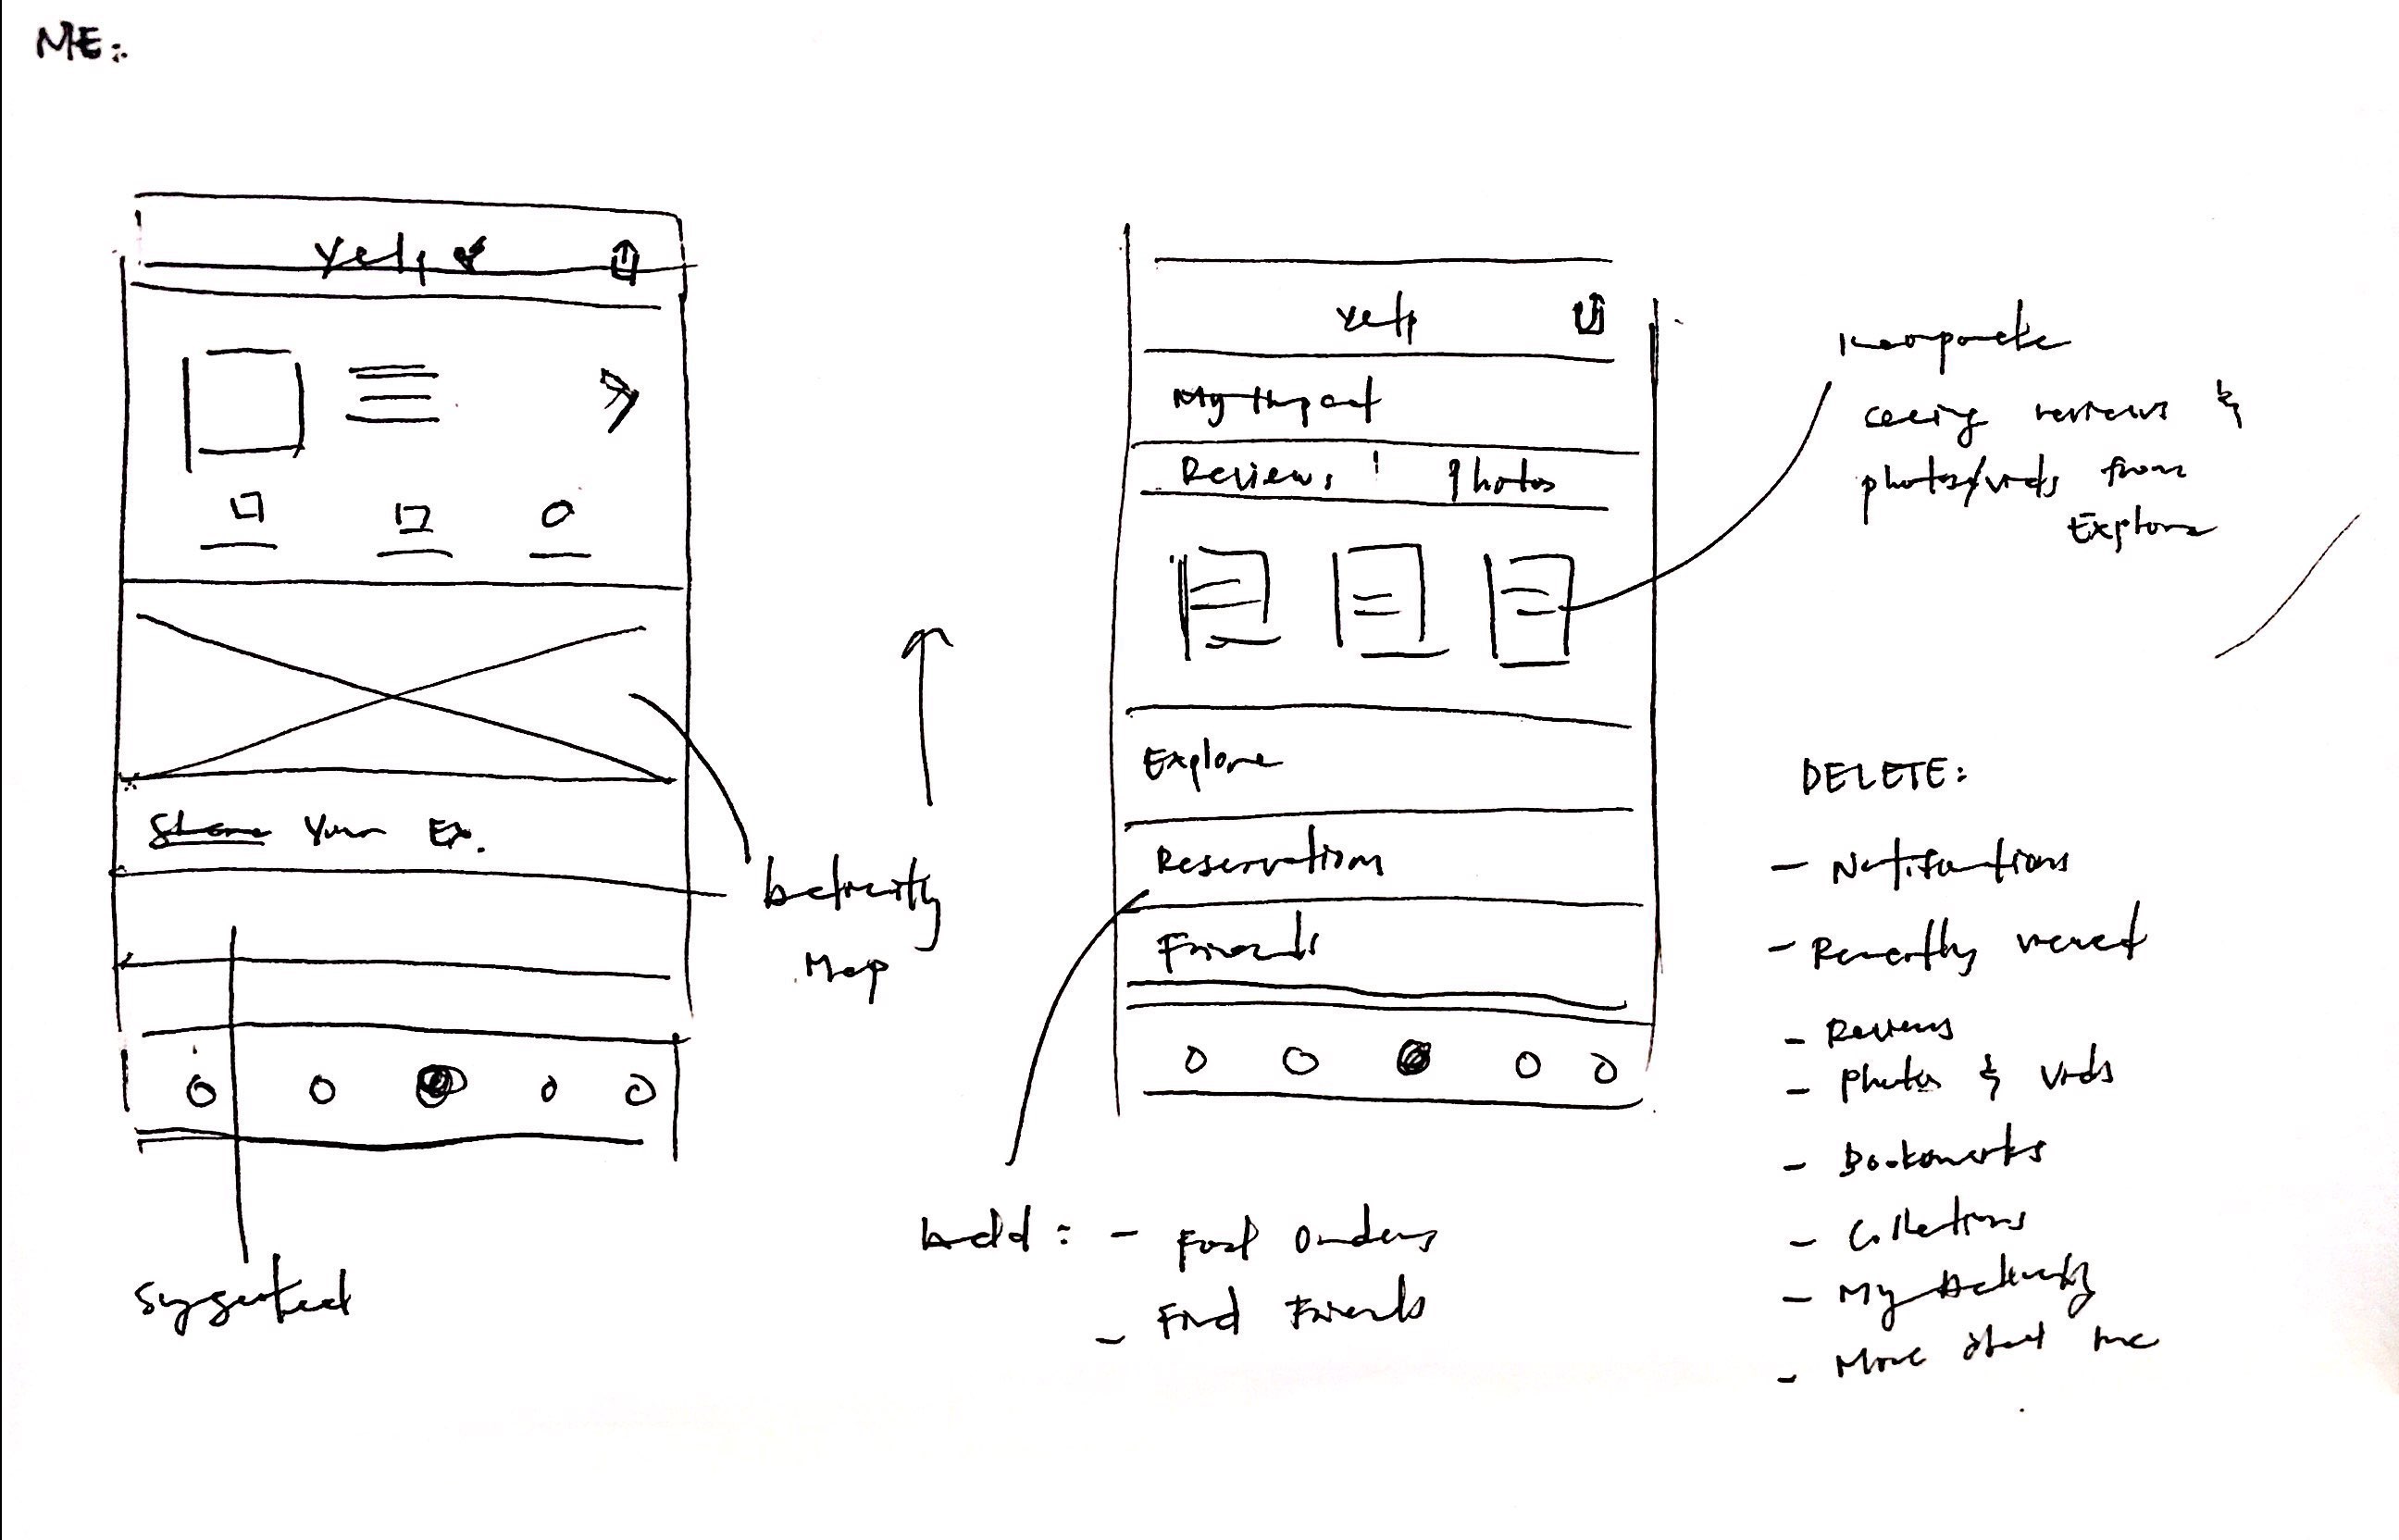 ME:
yelp
Share Your Ex.
Activity
Map
Suggested
yelp
My Impact
Reviews Photos
Explore
Reservations
Friends
Incorporate
seeing reviews &
photos/vids from
Explore
Add: - Food Orders
- Find Friends
DELETE:
- Notifications
- Recently viewed
- Reviews
- Photos & Vids
- Bookmarks
- Collections
- My Activity
- More about me